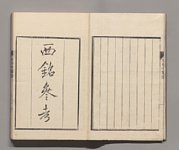 西銘參考